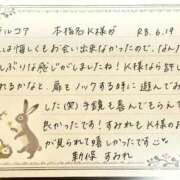 ラルコア 本指名K様が R8.6.19
は悔しくもお会い出来なかったので、なんだ
んぶりな感じがしましたね！K様なら許し
れるかなと、扉をノックする時に遊んでみ
した(笑)予鏡も喜んでもらえて
良かったです！すみれもK様のお
が見られて嬉しかったです
新保 すみれ